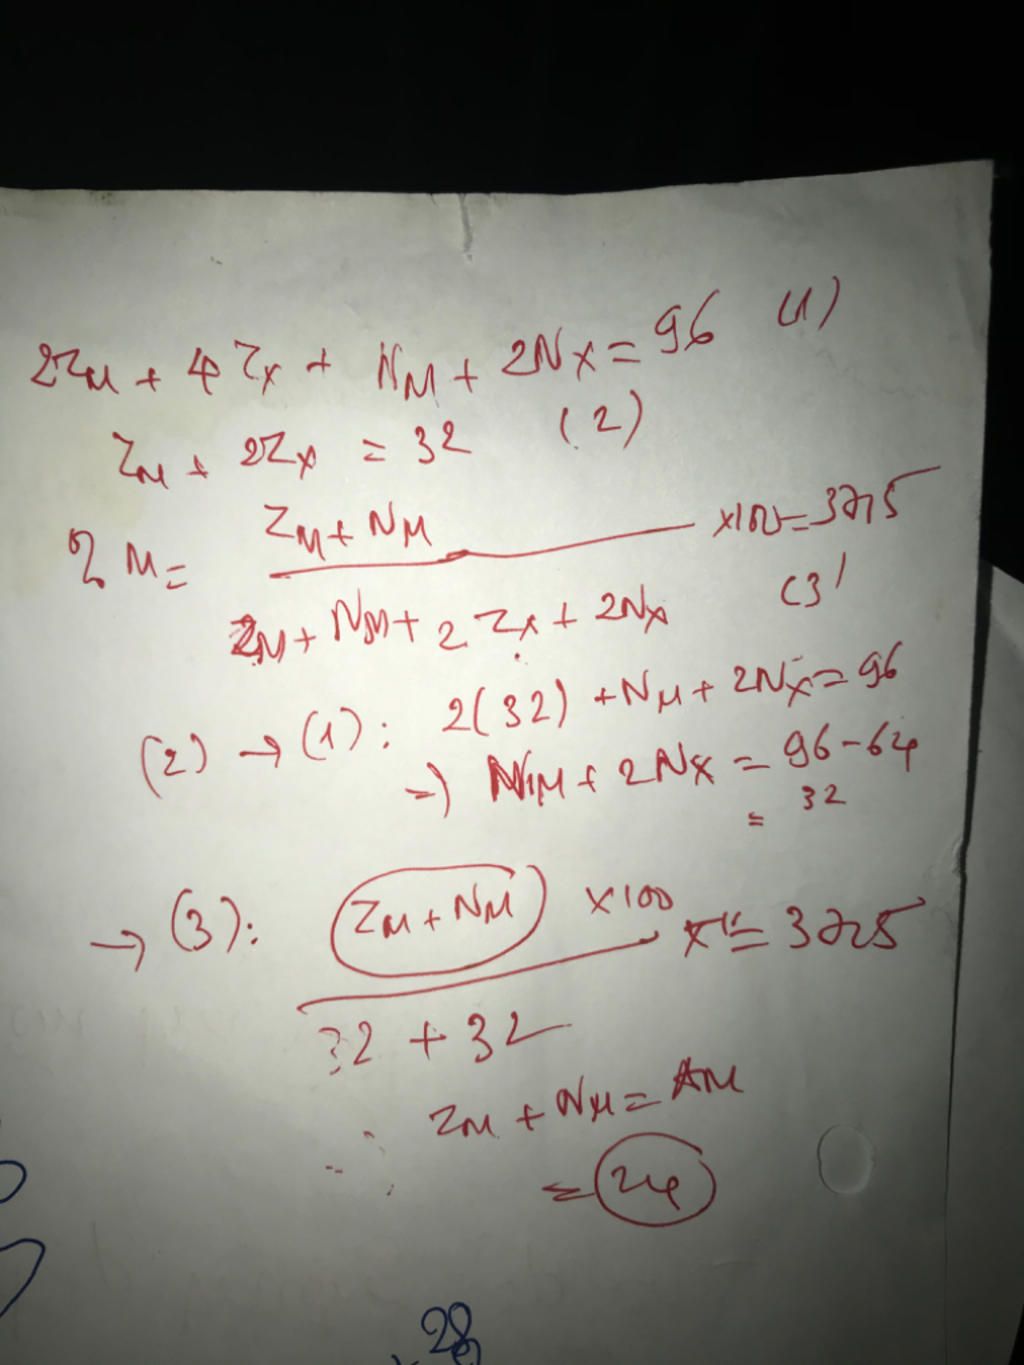 2Z_M + 4Z_X + N_M + 2N_X = 96 (1)
Z_M + 2Z_X = 32 (2)
Z_M + N_M
% M = ——— x100 = 37,5
Z_M + N_M + 2Z_X + 2N_X (3)
(2) → (1): 2(32) + N_M + 2N_X = 96
=) N_M + 2N_X = 96 - 64
= 32
→ (3): Z_M + N_M x100 = 37,5
32 + 32
Z_M + N_M = A_M
= 24
28